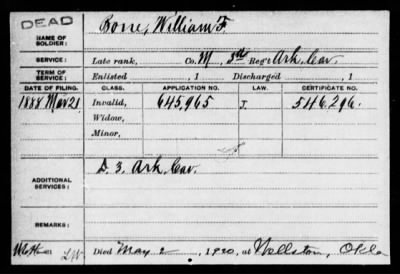 DEAD
NAME OF SOLDIER: Bone, William F.
SERVICE: Late rank, Co. M, 3rd Reg't Ark. Cav.
TERM OF SERVICE: Enlisted , 1 Discharged , 1
DATE OF FILING. CLASS. APPLICATION NO. LAW. CERTIFICATE NO.
1888 Mar 21 Invalid, 645,965 J. 546,296.
Widow,
Minor,
ADDITIONAL SERVICES: D. 3, Ark. Cav.
REMARKS:
Died May 2, 1920, at Wellston, Okla